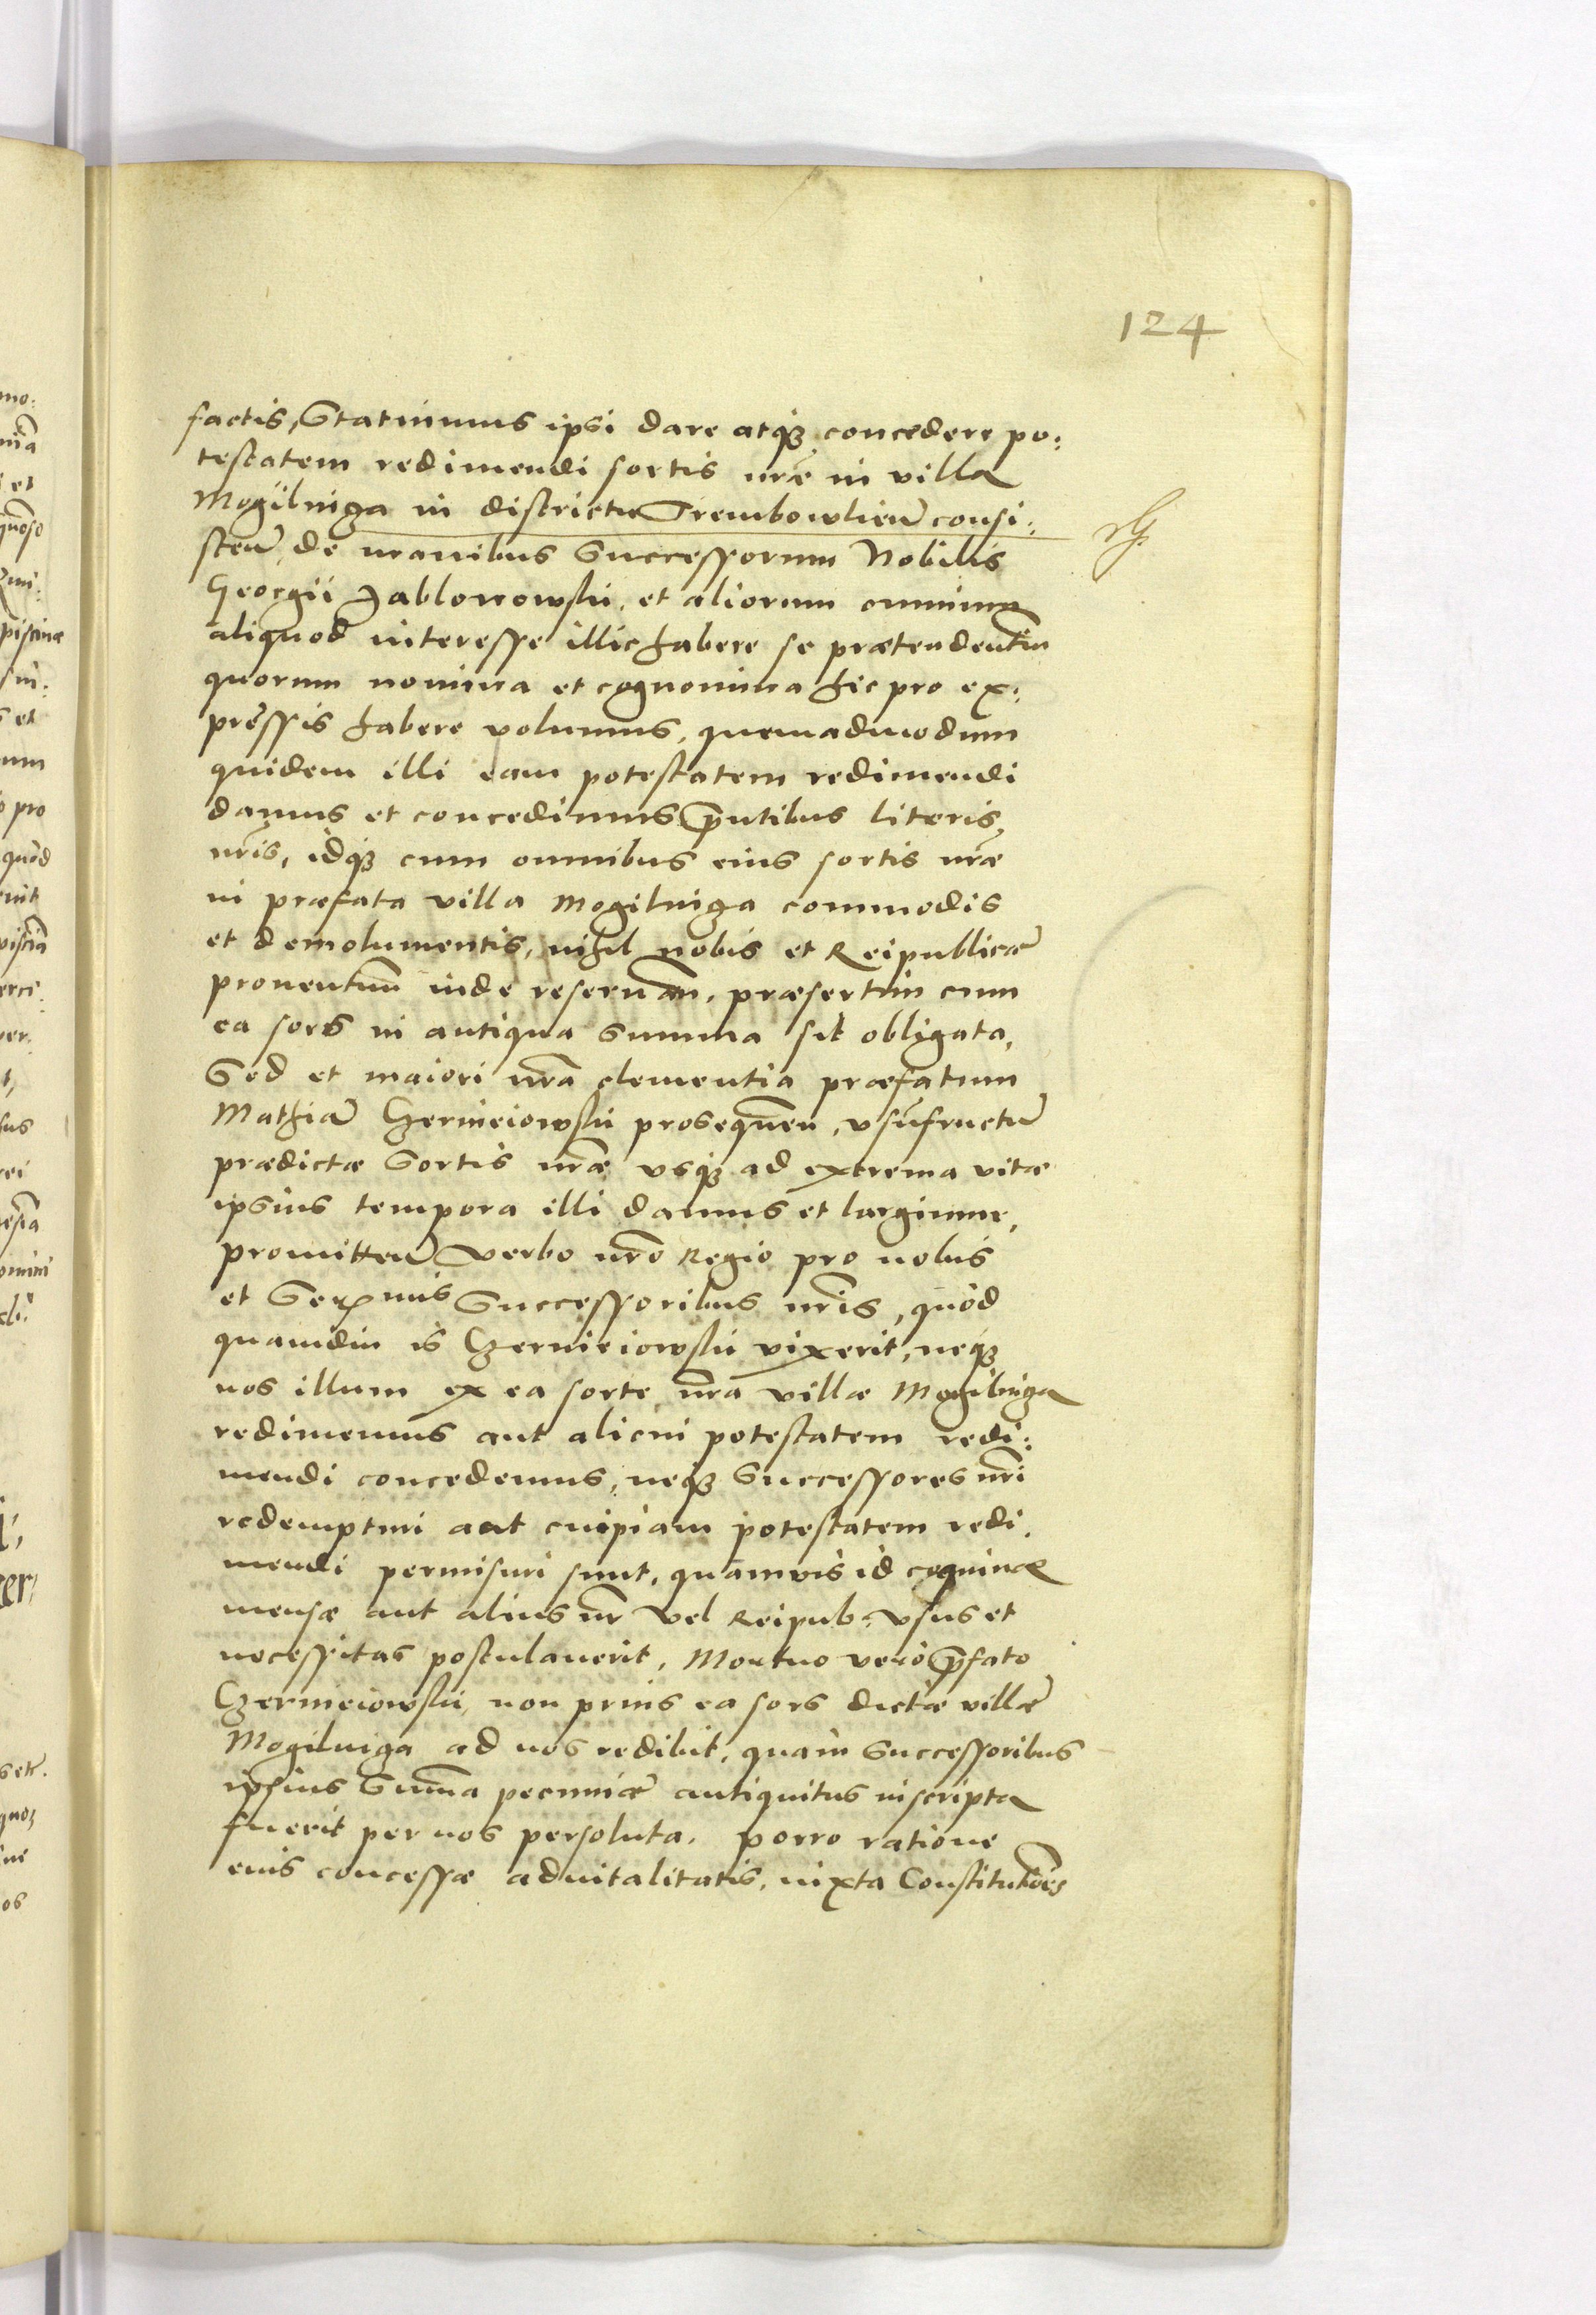 124
factis, Statuimus ipsi dare atq3 concedere po:
testatem redimendi sortis nrae in villa
Mogilniga in districtu Trembowlien consi:
sten de manibus Successorum Nobilis
Georgii Jablonowski, et aliorum omnium
aliquod interesse illic habere se praetendentiu
quorum nomina et cognomina hic pro ex:
pressis habere volumus, quemadmodum
quidem illi eam potestatem redimendi
damus et concedimus pntibus literis
nris, idq3 cum omnibus eius sortis nrae
in praefata villa Mogilniga commodis
et demolumentis, nihil nobis et Reipublicae
prouentuum inde reseruan, praesertim cum
ea sors in antiqua Summa sit obligata,
Sed et maiori nra clementia praefatum
Mathia Czermieiowski prosequen, vsufructu
praedictae Sortis nrae vsq3 ad extrema vitae
ipsius tempora illi damus et largimur,
promitten verbo nro Regio pro nobis
et Serenmis Successoribus nris, quod
quamdiu is Czermieiowski vixerit, neq3
nos illum ex ea sorte nra villae Mogilniga
redimemus aut alicui potestatem redi:
mendi concedemus, neq3 Successores nri
redempturi aut cuipiam potestatem redi.
mendi permisuri sunt, quamvis id coquinae
mensae aut alius nr vel Reipub: vsus et
necessitas postulauerit, Mortuo vero pfato
Czermieiowski, non prius ea sors dictae villae
Mogilniga ad nos redibit, quam Successoribus
ipsius Suma pecuniae antiquitus inscripta
fuerit per nos persoluta. porro ratione
eius concessae aduitalitatis, iuxta Constitutiones